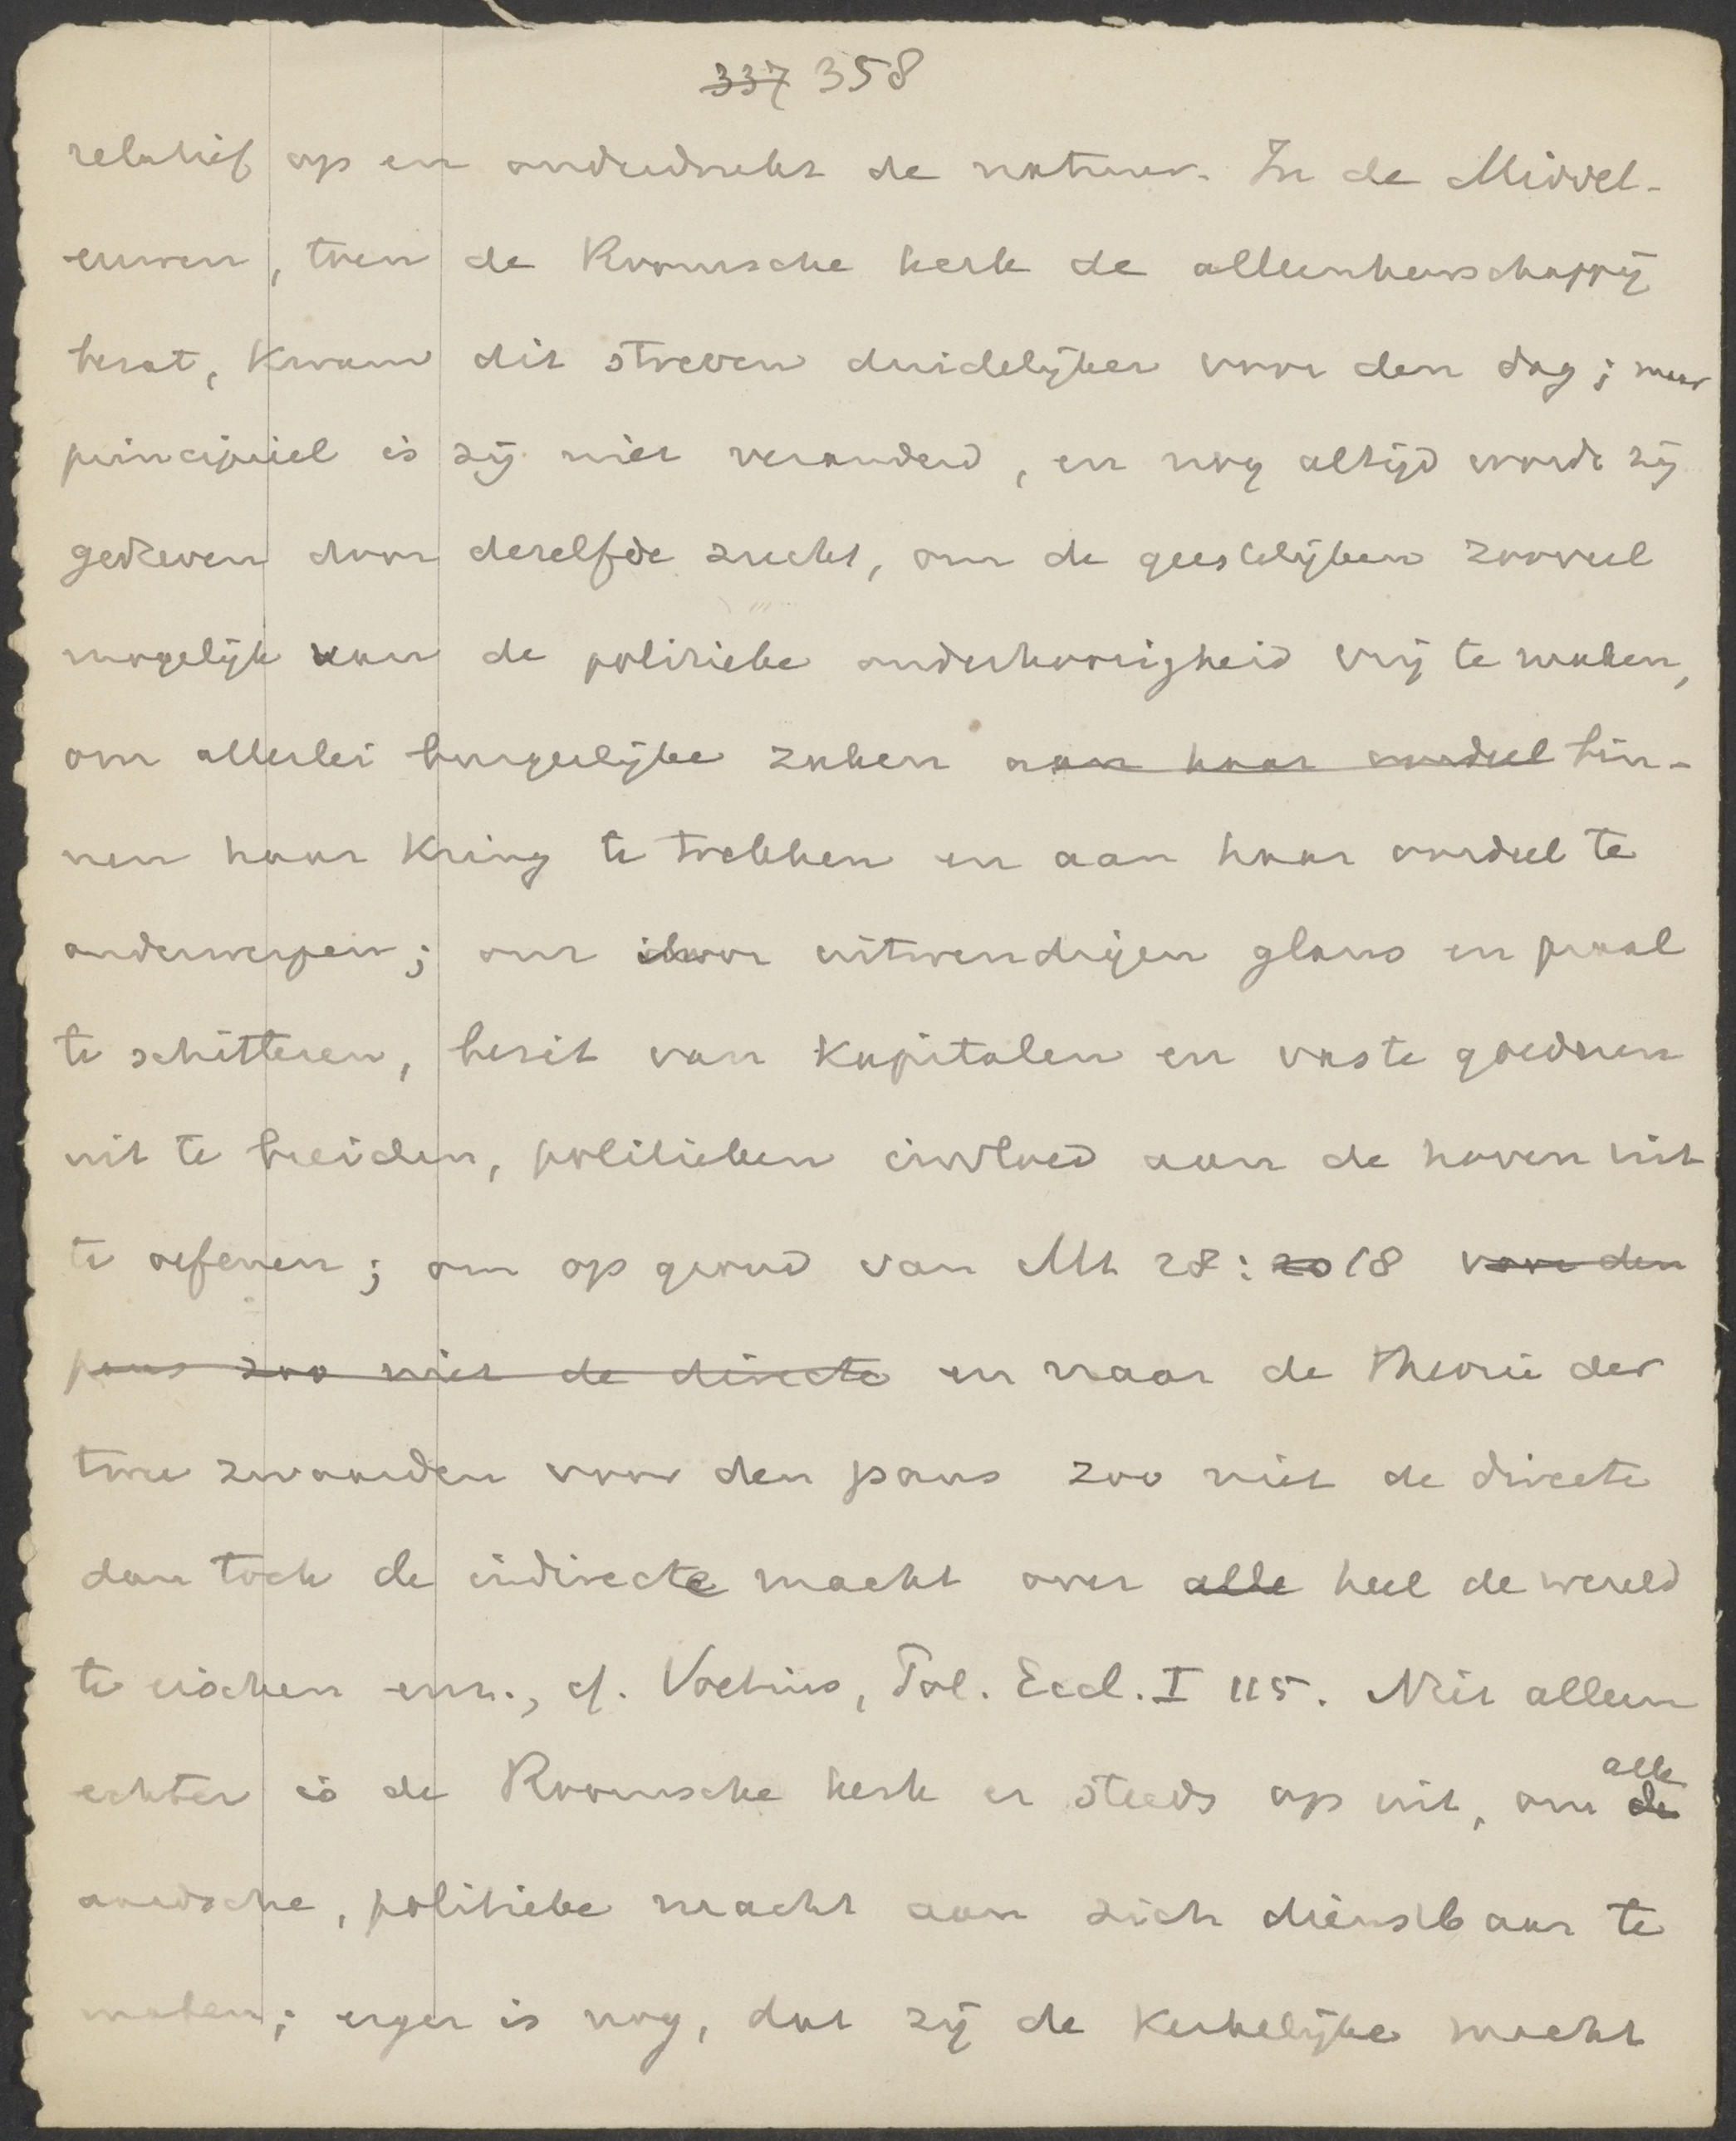 337 358
relatief op en onderdrukt de natuur. In de Middel-
eeuwen, toen de Roomsche kerk de alleenheerschappij
bezat, kwam dit streven duidelijker voor den dag; maar
principieel is zij niet veranderd, en nog altijd wordt zij
gedreven door dezelfde zucht, om de geestelijken zooveel
mogelijk van de politieke onderhoorigheid vrij te maken,
om allerlei burgerlijke zaken aan haar oordeel bin-
nen haar kring te trekken en aan haar oordeel te
onderwerpen; om door uitwendigen glans en praal
te schitteren, bezit van kapitalen en vaste goederen
uit te breiden, politieken invloed aan de hoven uit
te oefenen; om op grond van Mt 28:20 18 voor den
paus zoo niet de directe en naar de theorie der
twee zwaarden voor den paus zoo niet de directe
dan toch de indirecte macht over alle heel de wereld
te eischen enz., cf. Voetius, Pol. Eccl. I 115. Niet alleen
echter is de Roomsche kerk er steeds op uit, om de alle
aardsche, politieke macht aan zich dienstbaar te
maken; erger is nog, dat zij de kerkelijke macht